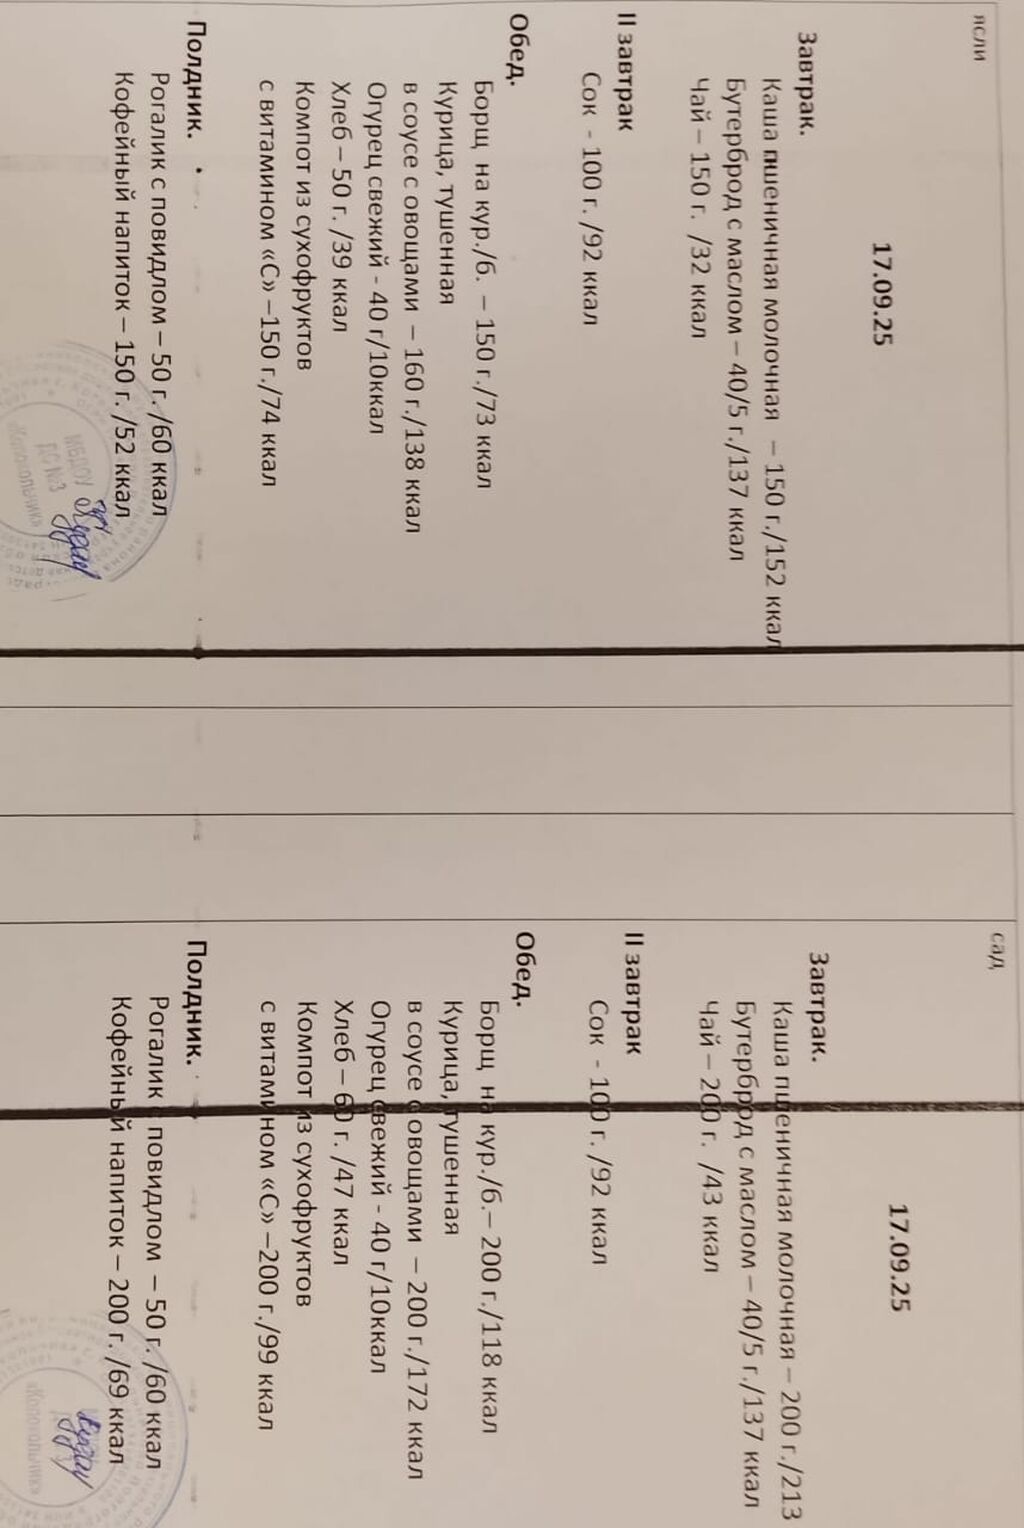 ясли
17.09.25
Завтрак.
Каша пшеничная молочная – 150 г./152 ккал
Бутерброд с маслом – 40/5 г./137 ккал
Чай – 150 г. /32 ккал
II завтрак
Сок - 100 г. /92 ккал
Обед.
Борщ на кур./б. – 150 г./73 ккал
Курица, тушенная
в соусе с овощами – 160 г./138 ккал
Огурец свежий - 40 г/10ккал
Хлеб – 50 г. /39 ккал
Компот из сухофруктов
с витамином «С» –150 г./74 ккал
Полдник.
Рогалик с повидлом – 50 г. /60 ккал
Кофейный напиток – 150 г. /52 ккал
МБДОУ
ДС №3
«Колокольчик»
сад
17.09.25
Завтрак.
Каша пшеничная молочная – 200 г./213
Бутерброд с маслом – 40/5 г./137 ккал
Чай – 200 г. /43 ккал
II завтрак
Сок - 100 г. /92 ккал
Обед.
Борщ на кур./б.– 200 г./118 ккал
Курица, тушенная
в соусе с овощами – 200 г./172 ккал
Огурец свежий - 40 г/10ккал
Хлеб – 60 г. /47 ккал
Компот из сухофруктов
с витамином «С» –200 г./99 ккал
Полдник.
Рогалик с повидлом – 50 г. /60 ккал
Кофейный напиток – 200 г. /69 ккал
«Колокольчик»